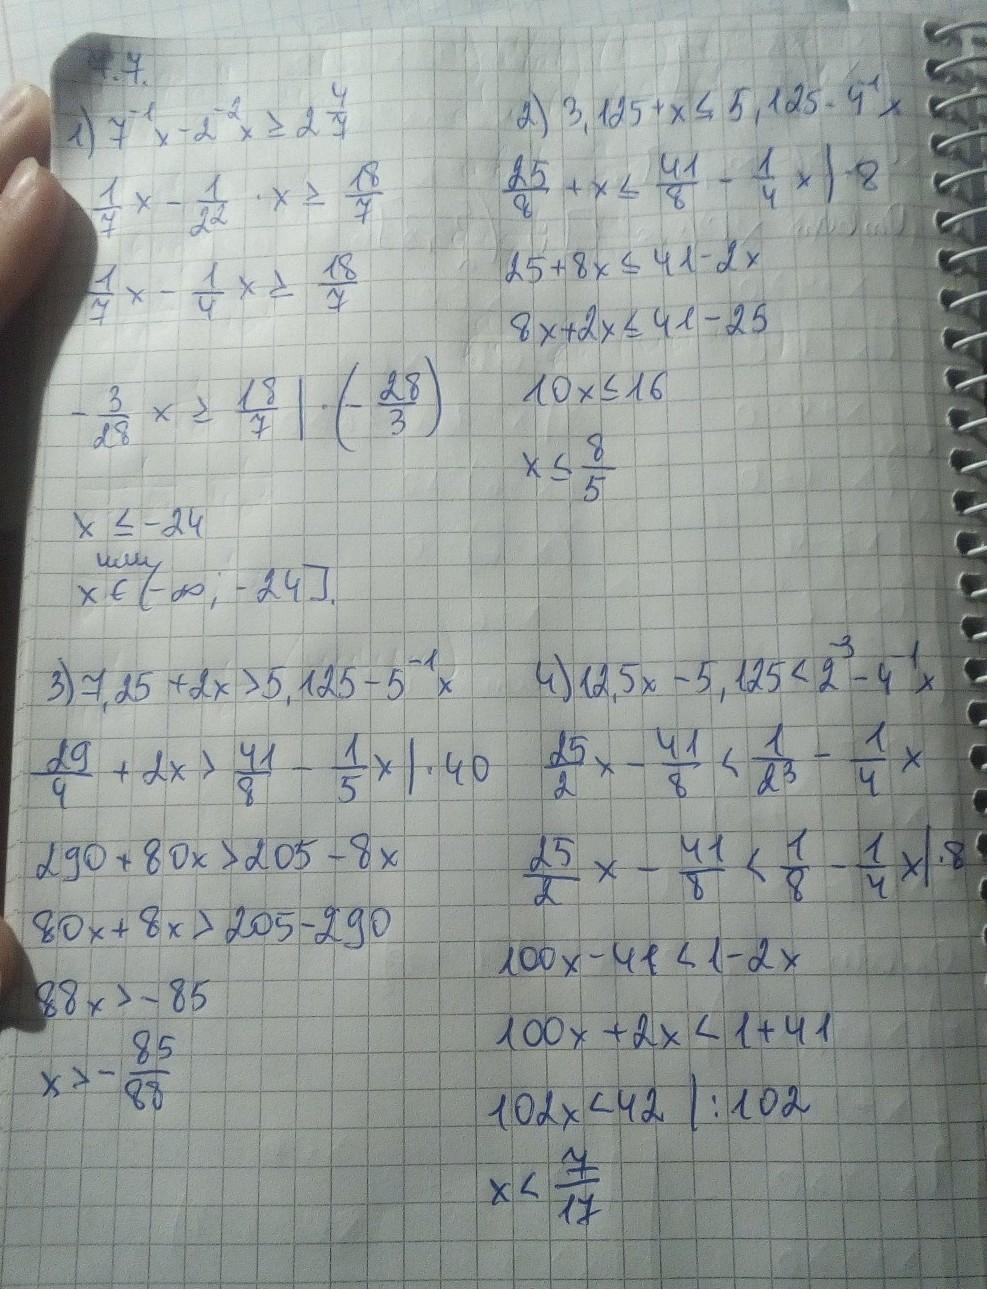 4.7.
1) 7⁻¹x - 2⁻²x ≥ 2 4/7
1/7 x - 1/2² · x ≥ 18/7
1/7 x - 1/4 x ≥ 18/7
- 3/28 x ≥ 18/7 | · (- 28/3)
x ≤ -24
или
x ∈ (-∞; -24].
2) 3,125 + x ≤ 5,125 - 4⁻¹x
25/8 + x ≤ 41/8 - 1/4 x | · 8
25 + 8x ≤ 41 - 2x
8x + 2x ≤ 41 - 25
10x ≤ 16
x ≤ 8/5
3) 7,25 + 2x > 5,125 - 5⁻¹x
29/4 + 2x > 41/8 - 1/5 x | · 40
290 + 80x > 205 - 8x
80x + 8x > 205 - 290
88x > - 85
x > - 85/88
4) 12,5x - 5,125 < 2⁻³ - 4⁻¹x
25/2 x - 41/8 < 1/2³ - 1/4 x
25/2 x - 41/8 < 1/8 - 1/4 x | · 8
100x - 41 < 1 - 2x
100x + 2x < 1 + 41
102x < 42 | : 102
x < 7/17